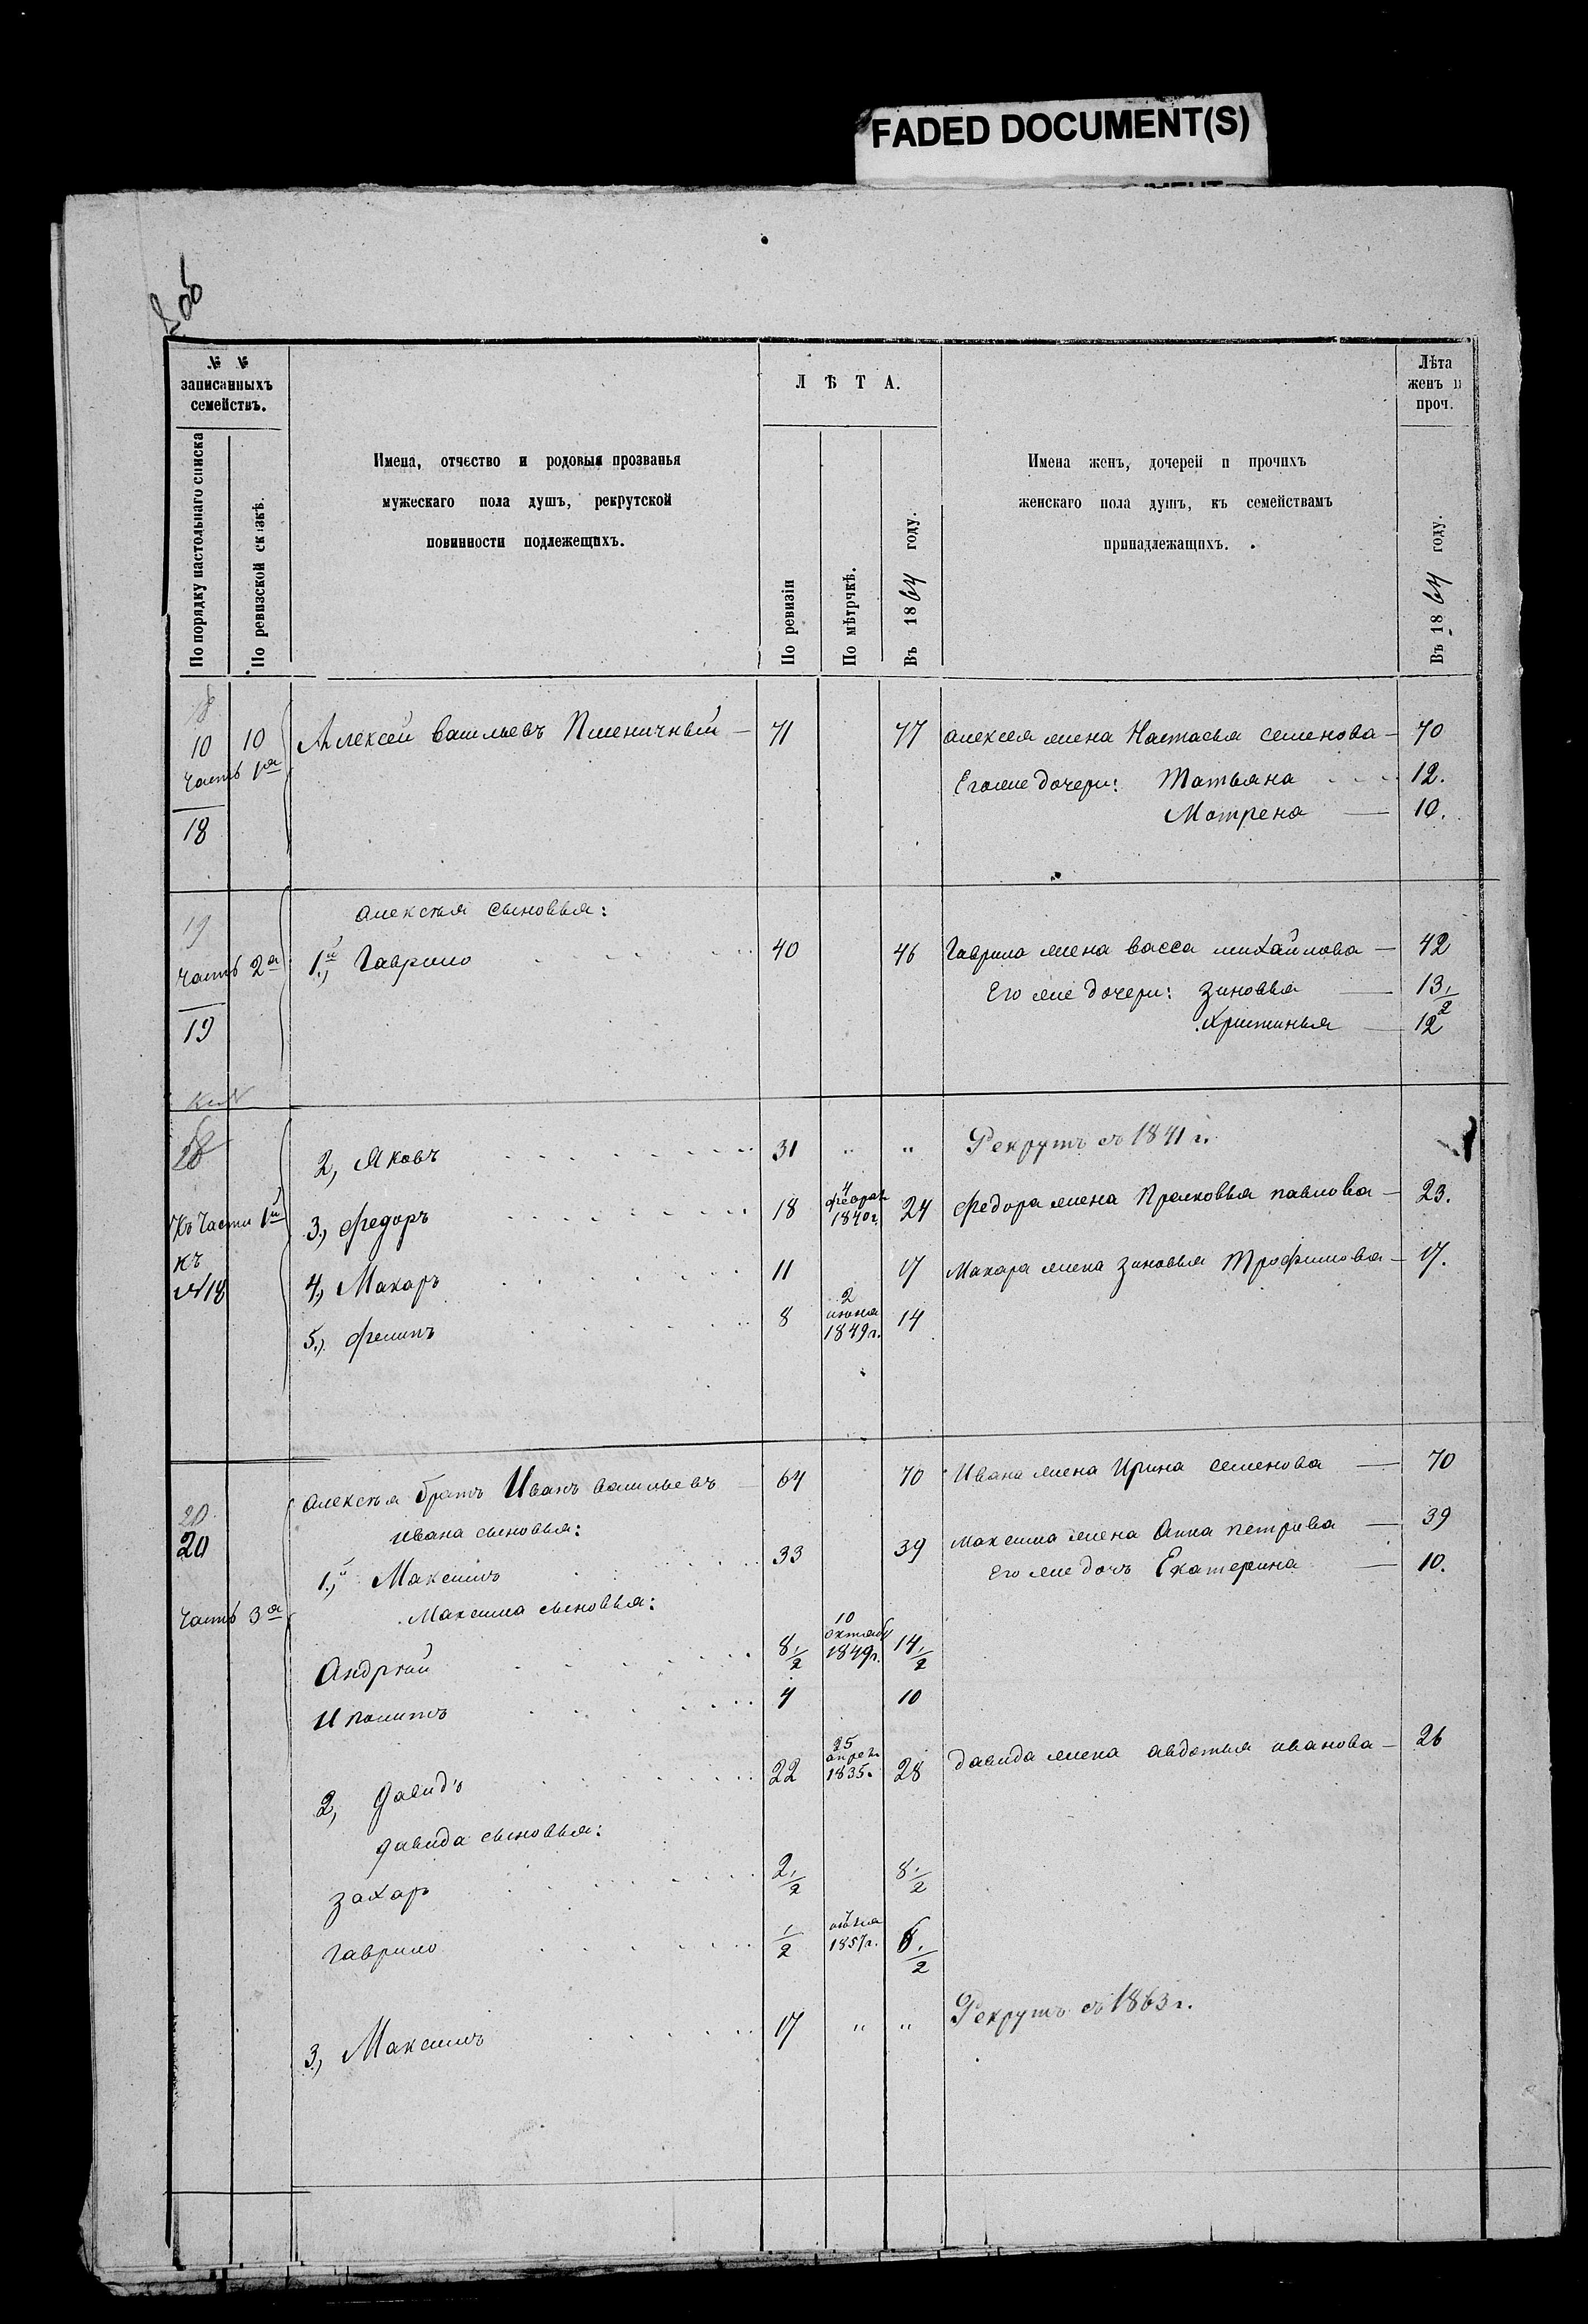 FADED DOCUMENT(S)
№ №
записанныхъ
семействъ.
По порядку настольнаго списка
По ревизской сказкѣ.
Имена, отчество и родовыя прозванья
мужескаго пола душъ, рекрутской
повинности подлежещихъ.
ЛѢТА.
По ревизіи
По мѣтрчкѣ.
Въ 1864 году.
Имена женъ, дочерей и прочихъ
женскаго пола душъ, къ семействамъ
принадлежащихъ.
Лѣта
женъ и
проч.
Въ 1864 году.
18
10 10 Алексей Васильевъ Пшеничный — 71 77 Алексея жена Настасья Семенова — 70
Часть 1я
Его же дочери: Татьяна 12.
Мотрена — 10.
18
19
Алексѣя сыновья:
Часть 2я 1й, Гаврило 40 46 Гаврила жена Васса Михайлова — 42
Его же дочери: Зиновья — 13 1/2
19
Христинья — 12
2, Яковъ 31 " " Рекрутъ съ 1841 г.
Къ Части 1й
къ
№ 18
3, Федоръ 18 4 Февраля 1840 г. 24 Федора жена Прасковья Павлова — 23.
4, Макаръ 11 17 Макара жена Зиновья Трофимова — 17.
5, Филипъ 8 2 июня 1849 г. 14
20
20
Алексѣя братъ Иванъ Васильевъ — 64 70 Ивана жена Ирина Семенова — 70
Ивана сыновья:
1й, Максимъ 33 39 Максима жена Анна Петрова — 39
Его же дочь Екатерина — 10.
Часть 3я
Максима сыновья:
Андрѣй 8 1/2 10 октяб 1849 г. 14 1/2
Иполитъ 4 10
2, Давидъ 22 25 апрел 1835. 28 Давида жена Авдотья Иванова — 26
Давида сыновья:
Захаръ 2 1/2 8 1/2
Гаврило 1/2 1857 г. 6 1/2
3, Максимъ 17 " " Рекрутъ съ 1863 г.